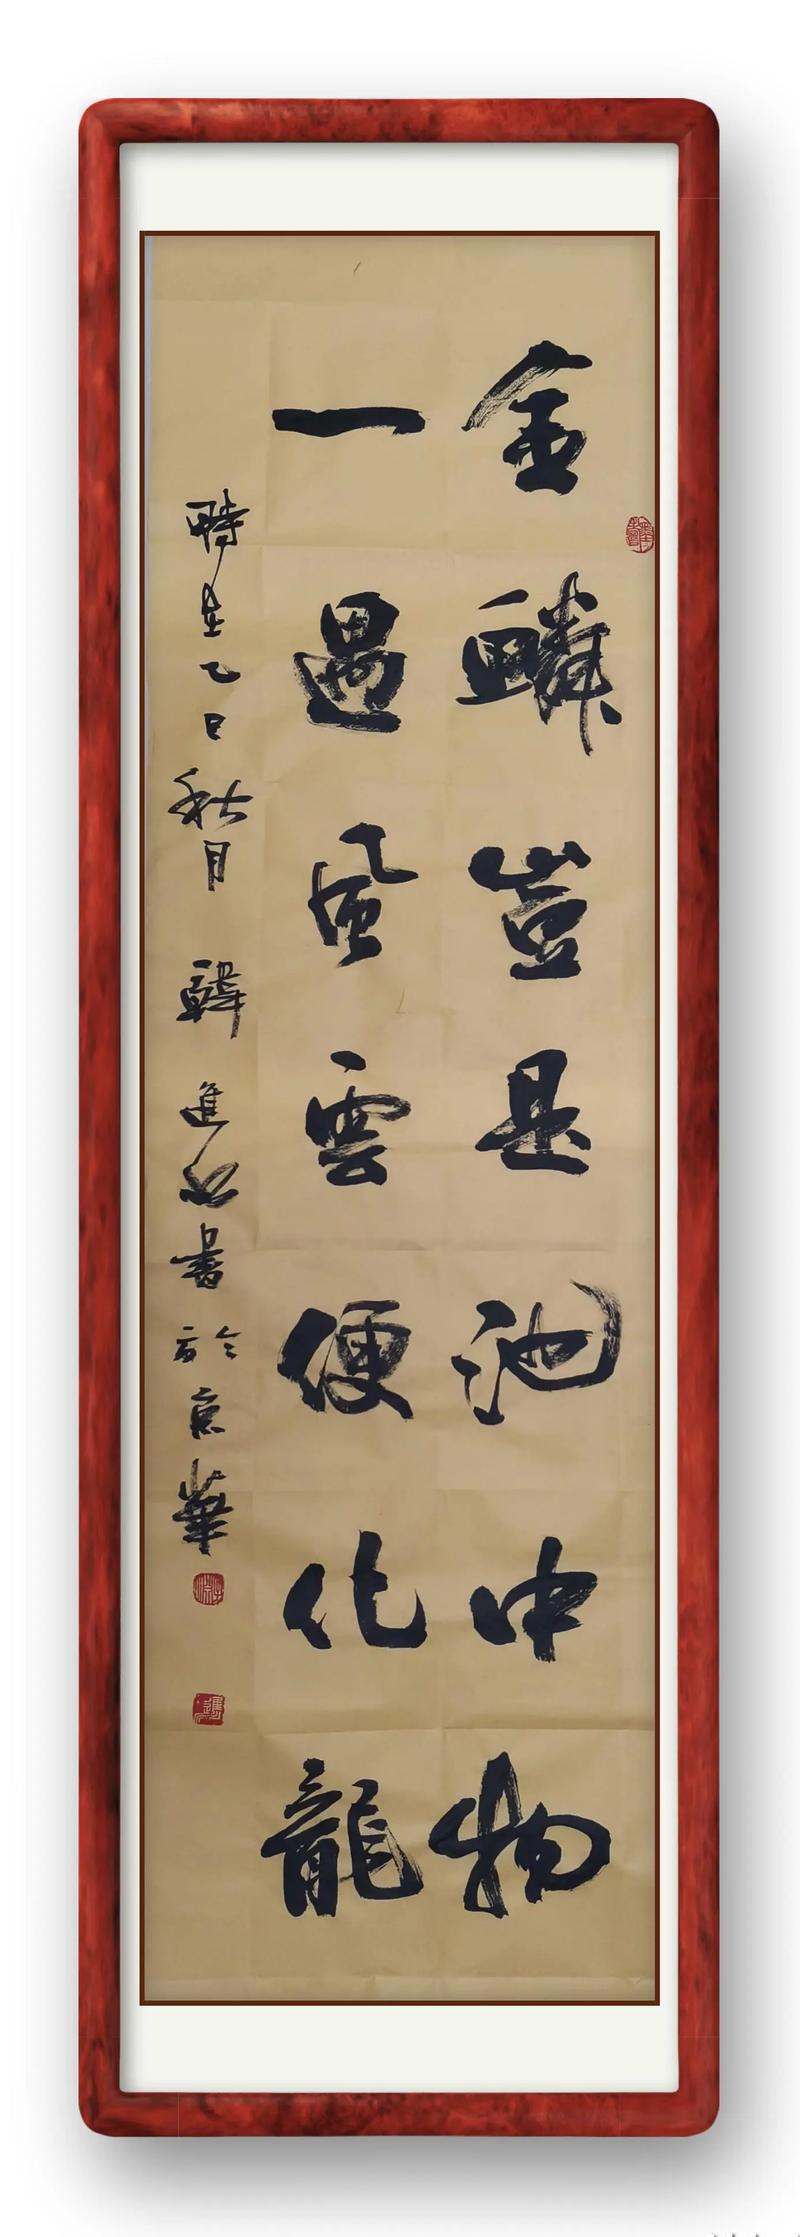 金鱗豈是池中物
一遇風雲便化龍
時在乙巳秋月 韓進書於京華